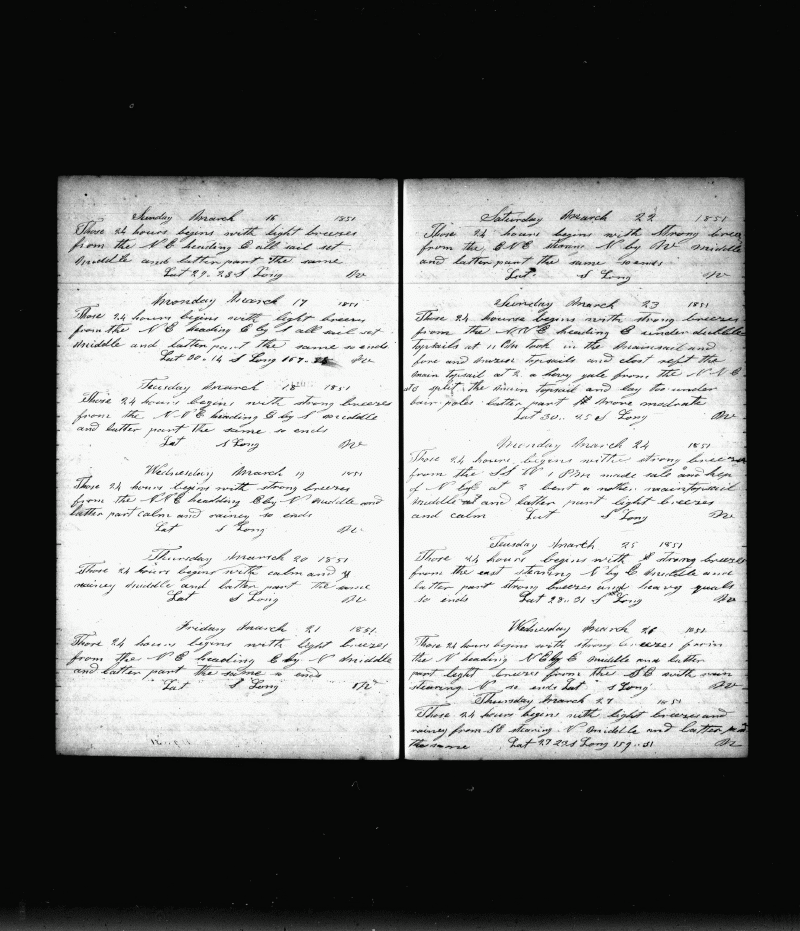 Sunday March 16 1851
Those 24 hours begins with light breezes
from the N E heading E all sail set
middle and latter part the same
Lat 29.. 28 S Long W
Monday March 17 1851
Those 24 hours begins with light breezes
from the N E heading E by S all sail set
middle and latter part the same so ends
Lat 30..14 S Long 157.. W
Tuesday March 18 1851
Those 24 hours begins with strong breezes
from the N N E heading E by S middle
and latter part the same so ends
Lat S Long W
Wednesday March 19 1851
Those 24 hours begins with strong breezes
from the N N E heading E by N middle and
latter part calm and rainey so ends
Lat S Long W
Thursday March 20 1851
Those 24 hours begins with calm and
rainey middle and latter part the same
Lat S Long W
Friday March 21 1851
Those 24 hours begins with light breezes
from the N E heading E by N middle
and latter part the same so ends
Lat S Long W
Saturday March 22 1851
Those 24 hours begins with Strong breezes
from the E N E stearing N by W middle
and latter part the same so ends
Lat S Long W
Sunday March 23 1851
Those 24 hours begins with strong breezes
from the N N E heading E under dubble
topsails at 11 took in the mainsail and
fore and topsails and close reft the
main topsail at 2 a hevy gale from the N N E
at 3 split the main topsail and lay too under
bair poles latter part more modrate
Lat 30.. 25 S Long W
Monday March 24 1851
Those 24 hours begins with strong breezes
from the S S W 1 PM made sale and kep
of N by E at 2 bent a nother maintopsail
middle and latter part light breezes
and calm Lat S Long W
Tuesday March 25 1851
Those 24 hours begins with strong breezes
from the east stearing N by E middle and
latter part strong breezes and heavy qualls
so ends Lat 28..31 S Long W
Wednesday March 26 1851
Those 24 hours begins with strong breezes from
the N heading N E by E middle and latter
part light breezes from the S E with rain
stearing N so ends Lat S Long W
Thursday March 27 1851
Those 24 hours begins with light breezes and
rainey from SE stearing N middle and latter part
the same Lat 27 23 S Long 159..51 W